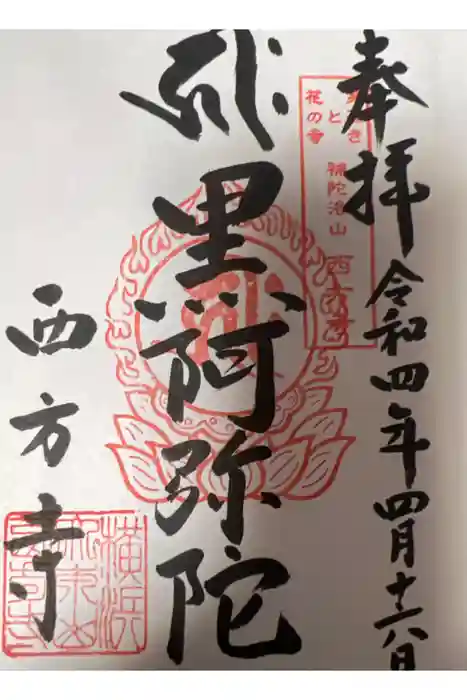 奉拝
令和四年四月十六日
と
花の寺
補陀洛山
西方寺
黒阿弥陀
西方寺
横浜